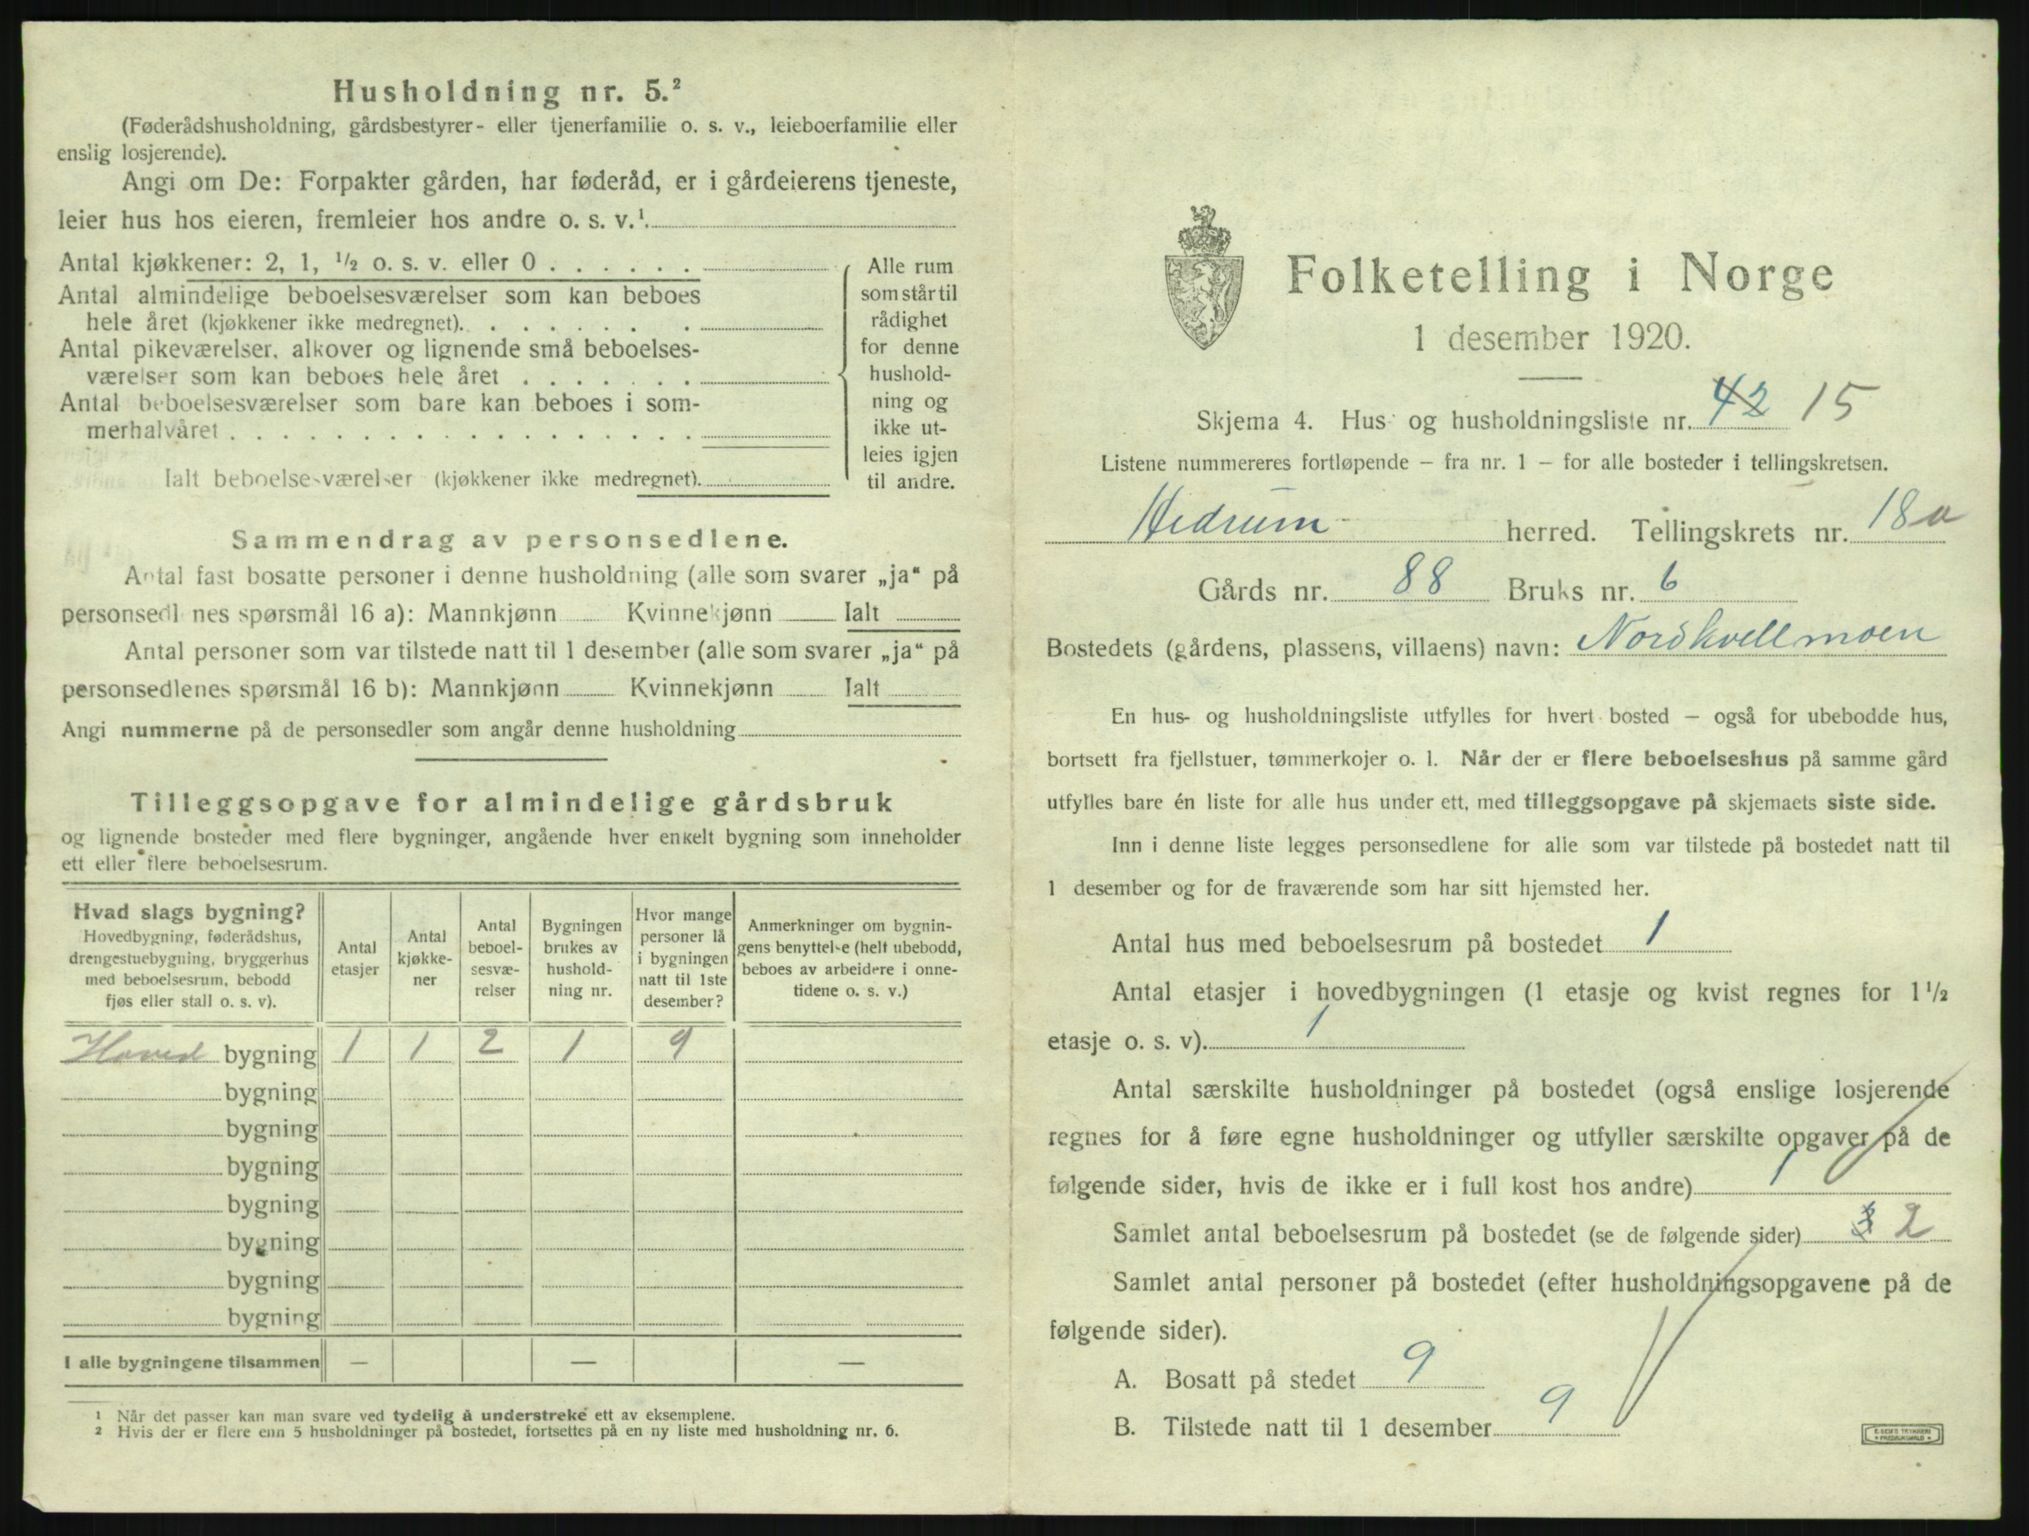 Husholdning nr. 5.²
(Føderådshusholdning, gårdsbestyrer- eller tjenerfamilie o. s. v., leieboerfamilie eller
enslig losjerende).
Angi om De: Forpakter gården, har føderåd, er i gårdeierens tjeneste,
leier hus hos eieren, fremleier hos andre o. s. v.¹.
Antal kjøkkener: 2, 1, ½ o. s. v. eller 0 . . . . . .
Antal almindelige beboelsesværelser som kan beboes
hele året (kjøkkener ikke medregnet). . . . . . . .
Antal pikeværelser, alkover og lignende små beboelses-
værelser som kan beboes hele året . . . . . . .
Antal beboelsesværelser som bare kan beboes i som-
merhalvåret . . . . . . . . . . . . . . . . . .
Ialt beboelsesværelser (kjøkkener ikke medregnet).
Alle rum
som står til
rådighet
for denne
hushold-
ning og
ikke ut-
leies igjen
til andre.
Sammendrag av personsedlene.
Antal fast bosatte personer i denne husholdning (alle som svarer „ja“ på
personsedlenes spørsmål 16 a): Mannkjønn Kvinnekjønn Ialt
Antal personer som var tilstede natt til 1 desember (alle som svarer „ja“ på
personsedlenes spørsmål 16 b): Mannkjønn Kvinnekjønn Ialt
Angi nummerne på de personsedler som angår denne husholdning
Tilleggsopgave for almindelige gårdsbruk
og lignende bosteder med flere bygninger, angående hver enkelt bygning som inneholder
ett eller flere beboelsesrum.
Hvad slags bygning?
Hovedbygning, føderådshus,
drengestuebygning, bryggerhus
med beboelsesrum, bebodd
fjøs eller stall o. s. v).
Antal
etasjer
Antal
kjøkke-
ner
Antal
beboel-
sesvæ-
relser
Bygningen
brukes av
hushold-
ning nr.
Hvor mange
personer lå
i bygningen
natt til 1ste
desember?
Anmerkninger om bygnin-
gens benyttelse (helt ubebodd,
beboes av arbeidere i onne-
tidene o. s. v.)
Hoved bygning 1 1 2 1 9
bygning
bygning
bygning
bygning
bygning
bygning
bygning
I alle bygningene tilsammen — — —
¹ Når det passer kan man svare ved tydelig å understreke ett av eksemplene.
² Hvis der er flere enn 5 husholdninger på bostedet, fortsettes på en ny liste med husholdning nr. 6.
Folketelling i Norge
1 desember 1920.
Skjema 4. Hus- og husholdningsliste nr. 42 15
Listene nummereres fortløpende – fra nr. 1 – for alle bosteder i tellingskretsen.
Hedrum herred. Tellingskrets nr. 18a
Gårds nr. 88 Bruks nr. 6
Bostedets (gårdens, plassens, villaens) navn: Nordkvellmoen
En hus- og husholdningsliste utfylles for hvert bosted – også for ubebodde hus,
bortsett fra fjellstuer, tømmerkojer o. l. Når der er flere beboelseshus på samme gård
utfylles bare én liste for alle hus under ett, med tilleggsopgave på skjemaets siste side.
Inn i denne liste legges personsedlene for alle som var tilstede på bostedet natt til
1 desember og for de fraværende som har sitt hjemsted her.
Antal hus med beboelsesrum på bostedet 1
Antal etasjer i hovedbygningen (1 etasje og kvist regnes for 1½
etasje o. s. v). 1
Antal særskilte husholdninger på bostedet (også enslige losjerende
regnes for å føre egne husholdninger og utfyller særskilte opgaver på de
følgende sider, hvis de ikke er i full kost hos andre) 1
Samlet antal beboelsesrum på bostedet (se de følgende sider) 3 2
Samlet antal personer på bostedet (efter husholdningsopgavene på de
følgende sider).
A. Bosatt på stedet 9
B. Tilstede natt til 1 desember 9